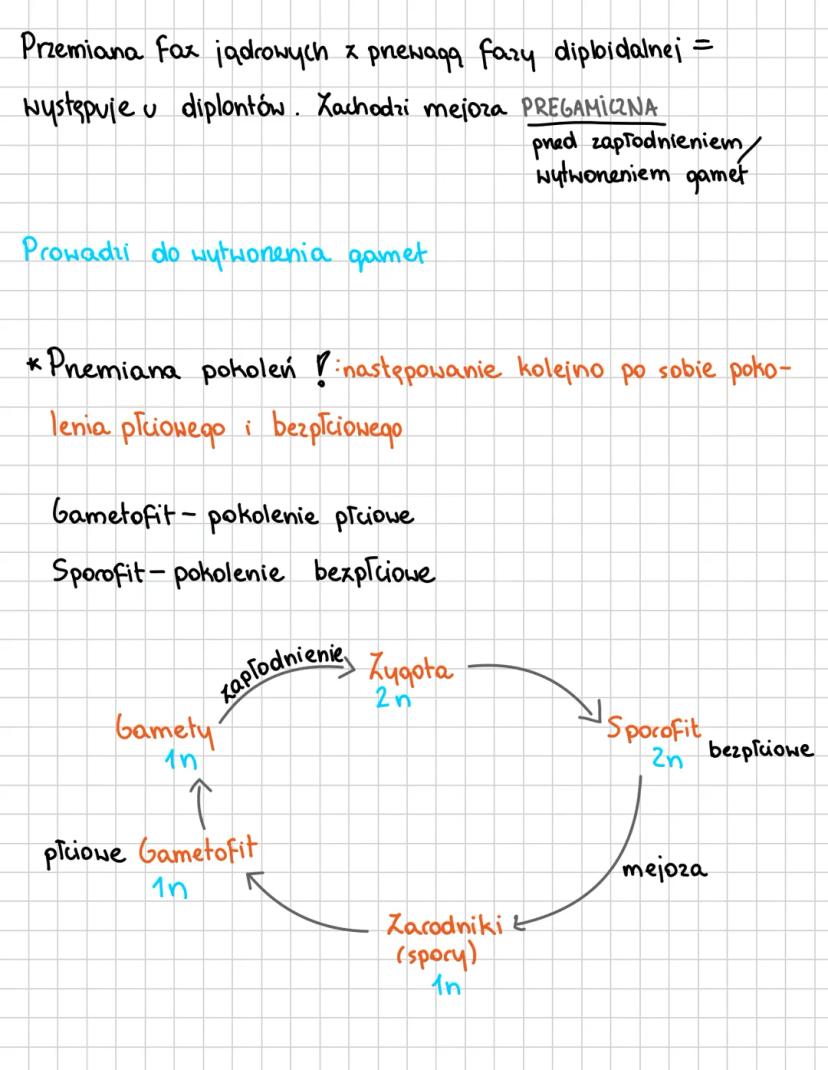 Przemiana faz jądrowych z przewagą fazy diploidalnej =
występuje u diplontów. Zachodzi mejoza PREGAMICZNA
przed zapłodnieniem/
wytworzeniem gamet
Prowadzi do wytworzenia gamet
*Przemiana pokoleń !: następowanie kolejno po sobie poko-
lenia płciowego i bezpłciowego
Gametofit - pokolenie płciowe
Sporofit - pokolenie bezpłciowe
zapłodnienie
Zygota
2n
Gamety
1n
Sporofit
2n
bezpłciowe
płciowe Gametofit
1n
mejoza
Zarodniki
(spory)
1n